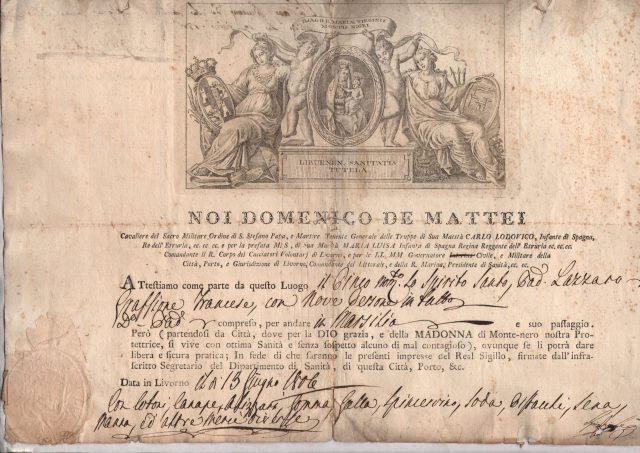 IMAGO B. MARIÆ VIRGINIS
MONTIS NIGRI
LIBURNEN. SANITATIS
TUTELA
NOI DOMENICO DE MATTEI
Cavaliere del Sacro Militare Ordine di S. Stefano Papa, e Martire Tenente Generale delle Truppe di Sua Maestà CARLO LODOVICO, Infante di Spagna,
Re dell' Etruria, ec. ec. ec. e per la prefata M. S., di Sua Maestà MARIA LUISA Infanta di Spagna Regina Reggente dell' Etruria ec. ec. ec.
Comandante il R. Corpo dei Cacciatori Volontarj di Livorno, e per le LL. MM Governatore Civile, e Militare della
Città, Porto, e Giurisdizione di Livorno, Comandante del Littorale, e della R. Marina, Presidente di Sanità, ec. ec.
ATtestiamo come parte da questo Luogo Lo Spirito Santo, Pad. Lazzaro
Francese, con Nove Persone in tutto
Pad. compreso, per andare in Marsilia e suo passaggio.
Però (partendosi da Città, dove per la DIO grazia, e della MADONNA di Monte-nero nostra Pro-
tettrice, si vive con ottima Sanità e senza sospetto alcuno di mal contagioso), ovunque se li potrà dare
libera e sicura pratica; In fede di che saranno le presenti impresse del Real Sigillo, firmate dall'infra-
scritto Segretario del Dipartimento di Sanità, di questa Città, Porto, &c.
Data in Livorno 13 Giugno 1806
Con Cotoni, Canape, Gomma, Galla, Spincervino, Soda, Pistacchi, Sena,
Manna, ed altre Merci diverse